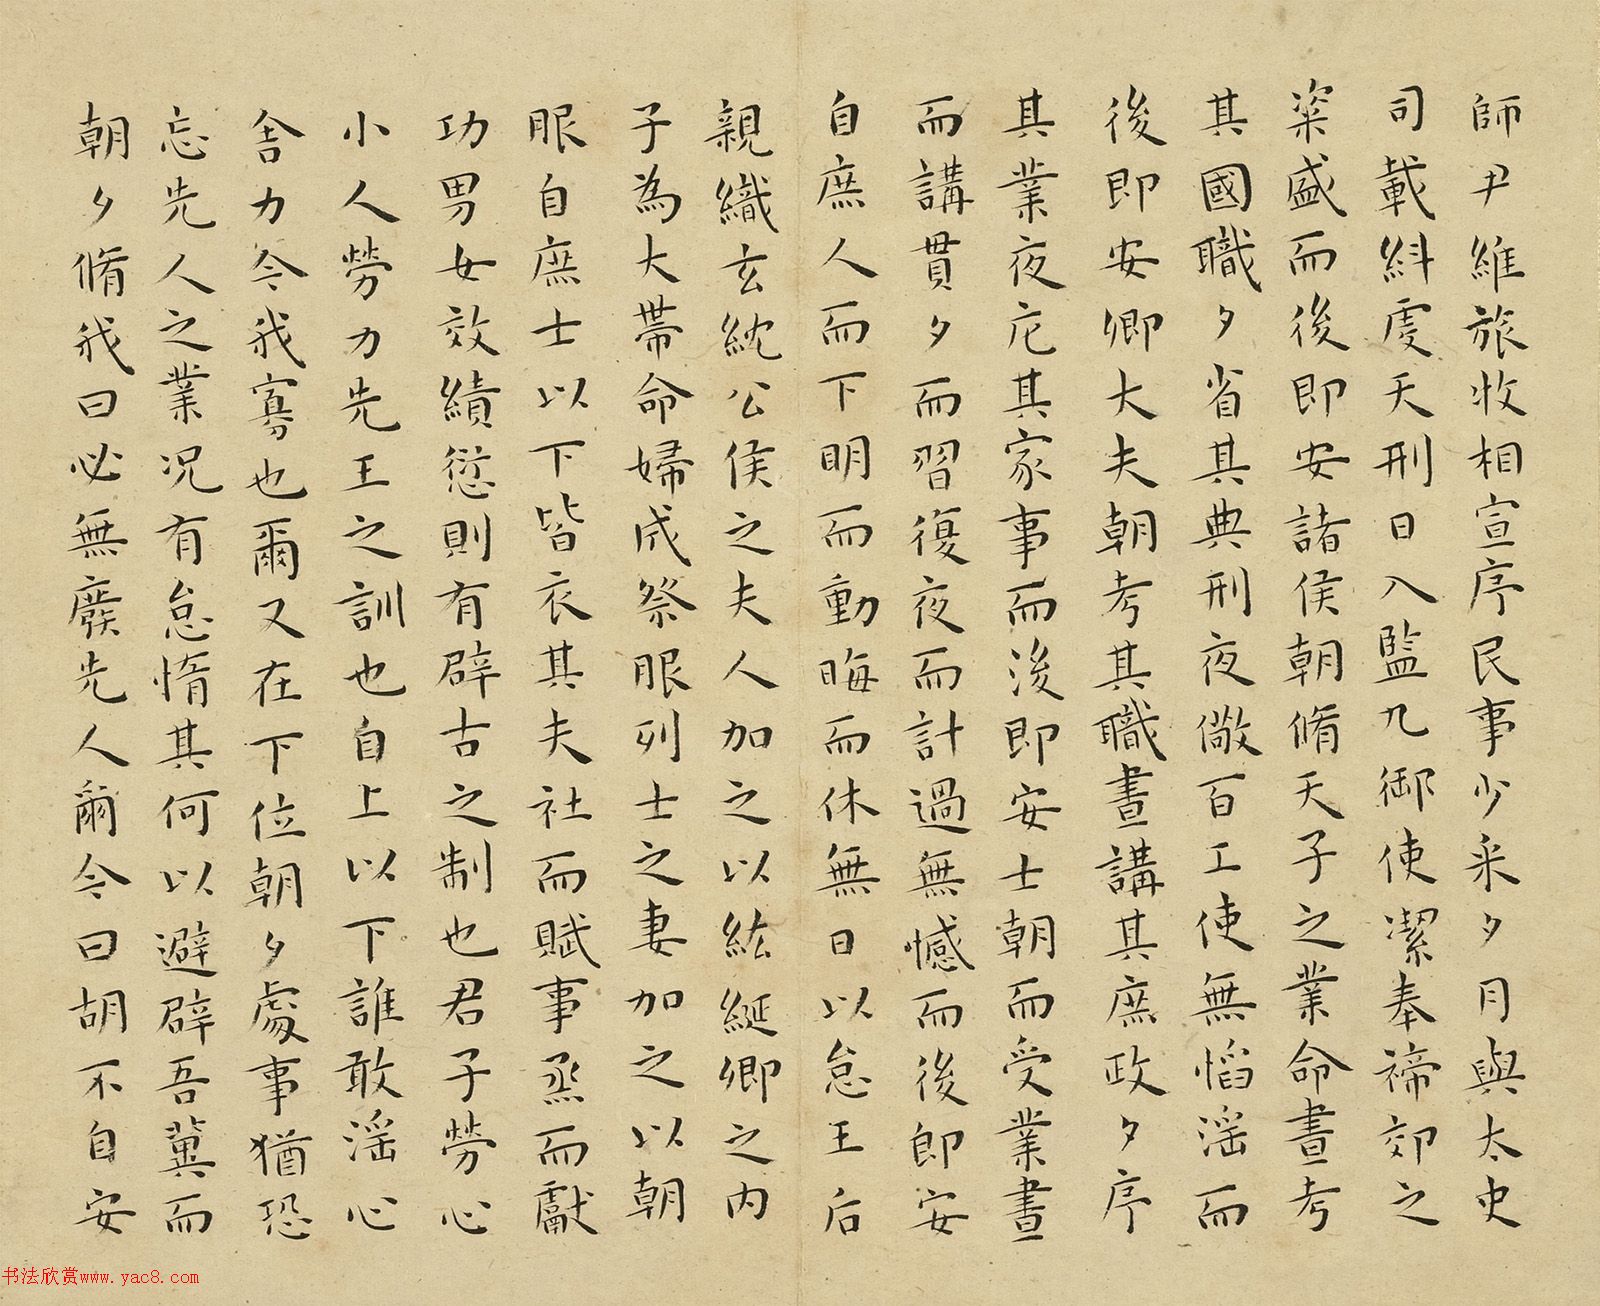 師尹維旅收相宣序民事少采夕月與太史
司載糾虔天刑日入監九御使潔奉禘郊之
粢盛而後即安諸侯朝脩天子之業命晝考
其國職夕省其典刑夜儆百工使無慆滛而
後即安卿大夫朝考其職晝講其庶政夕序
其業夜庀其家事而後即安士朝而受業晝
而講貫夕而習復夜而計過無憾而後即安
自庶人而下明而動晦而休無日以怠王后
親織玄紞公侯之夫人加之以紘綖卿之內
子為大帶命婦成祭服列士之妻加之以朝
服自庶士以下皆衣其夫社而賦事烝而獻
功男女效績愆則有辟古之制也君子勞心
小人勞力先王之訓也自上以下誰敢滛心
舍力今我寡也爾又在下位朝夕處事猶恐
忘先人之業況有怠惰其何以避辟吾冀而
朝夕脩我曰必無廢先人爾今曰胡不自安
书法欣赏www.yac8.com